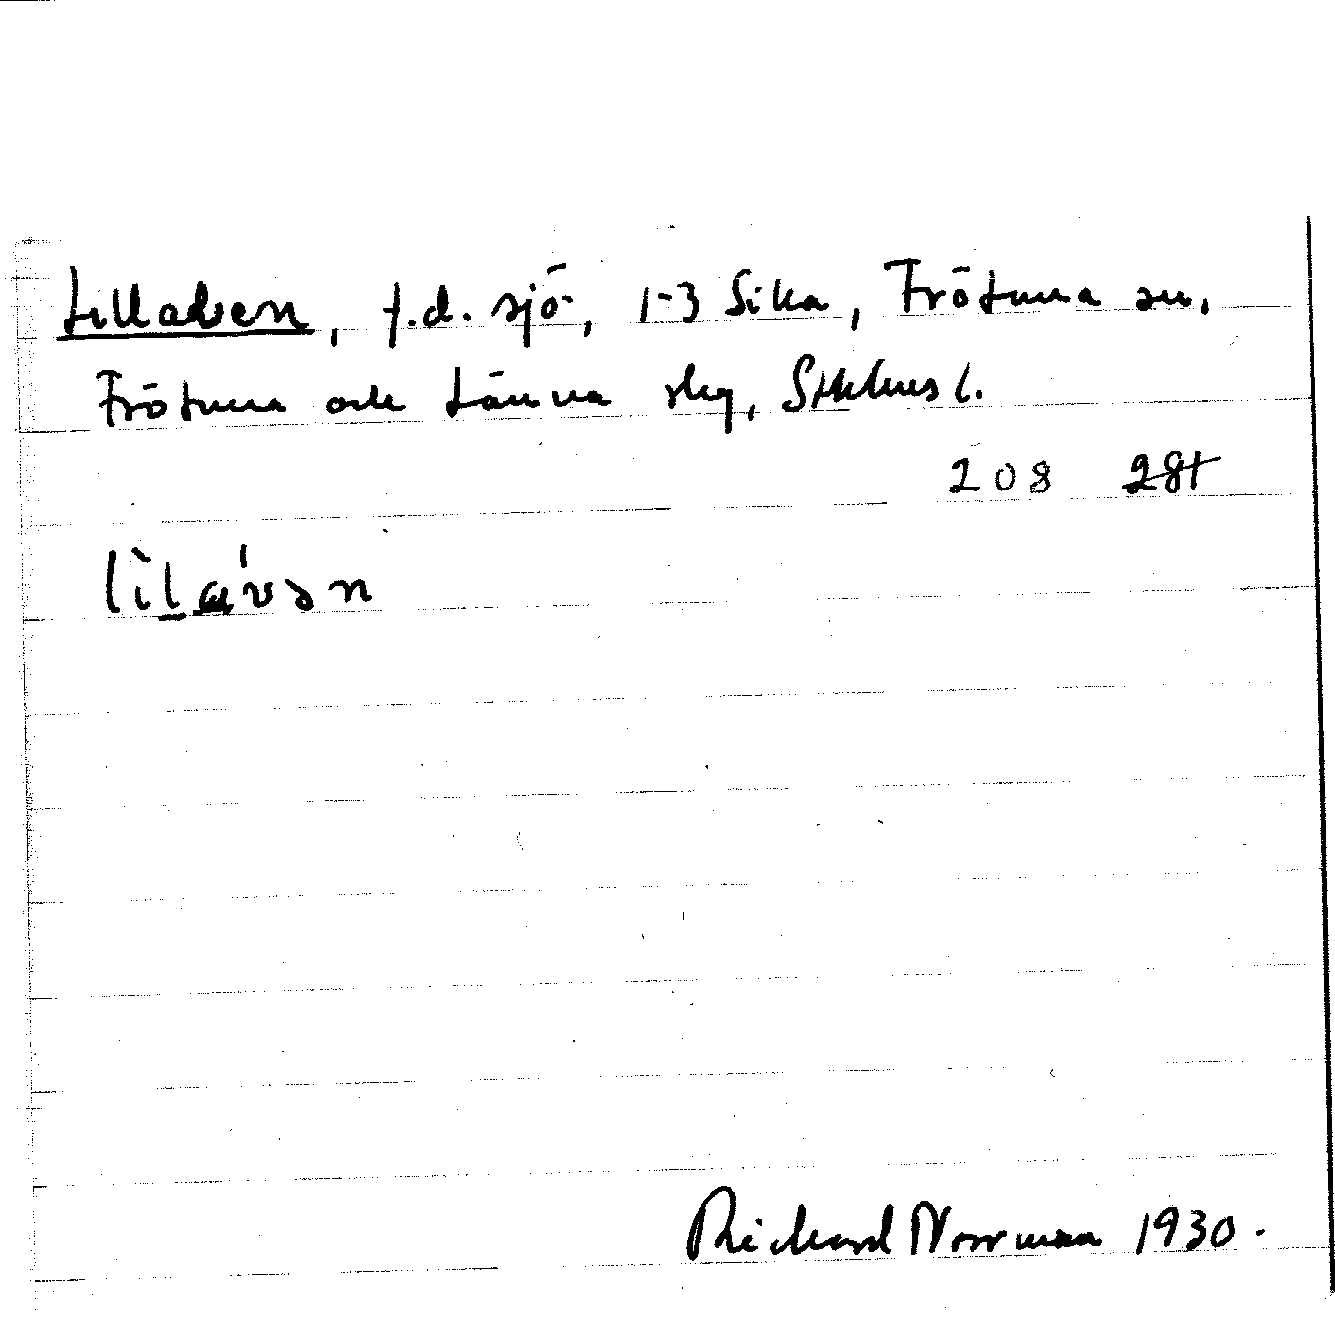 Lilladven, f.d. sjö, 1-3 Sika, Frötuna sn,
Frötuna och Länna slg, Sthlms l.
208 281
Richard Norrman 1930.